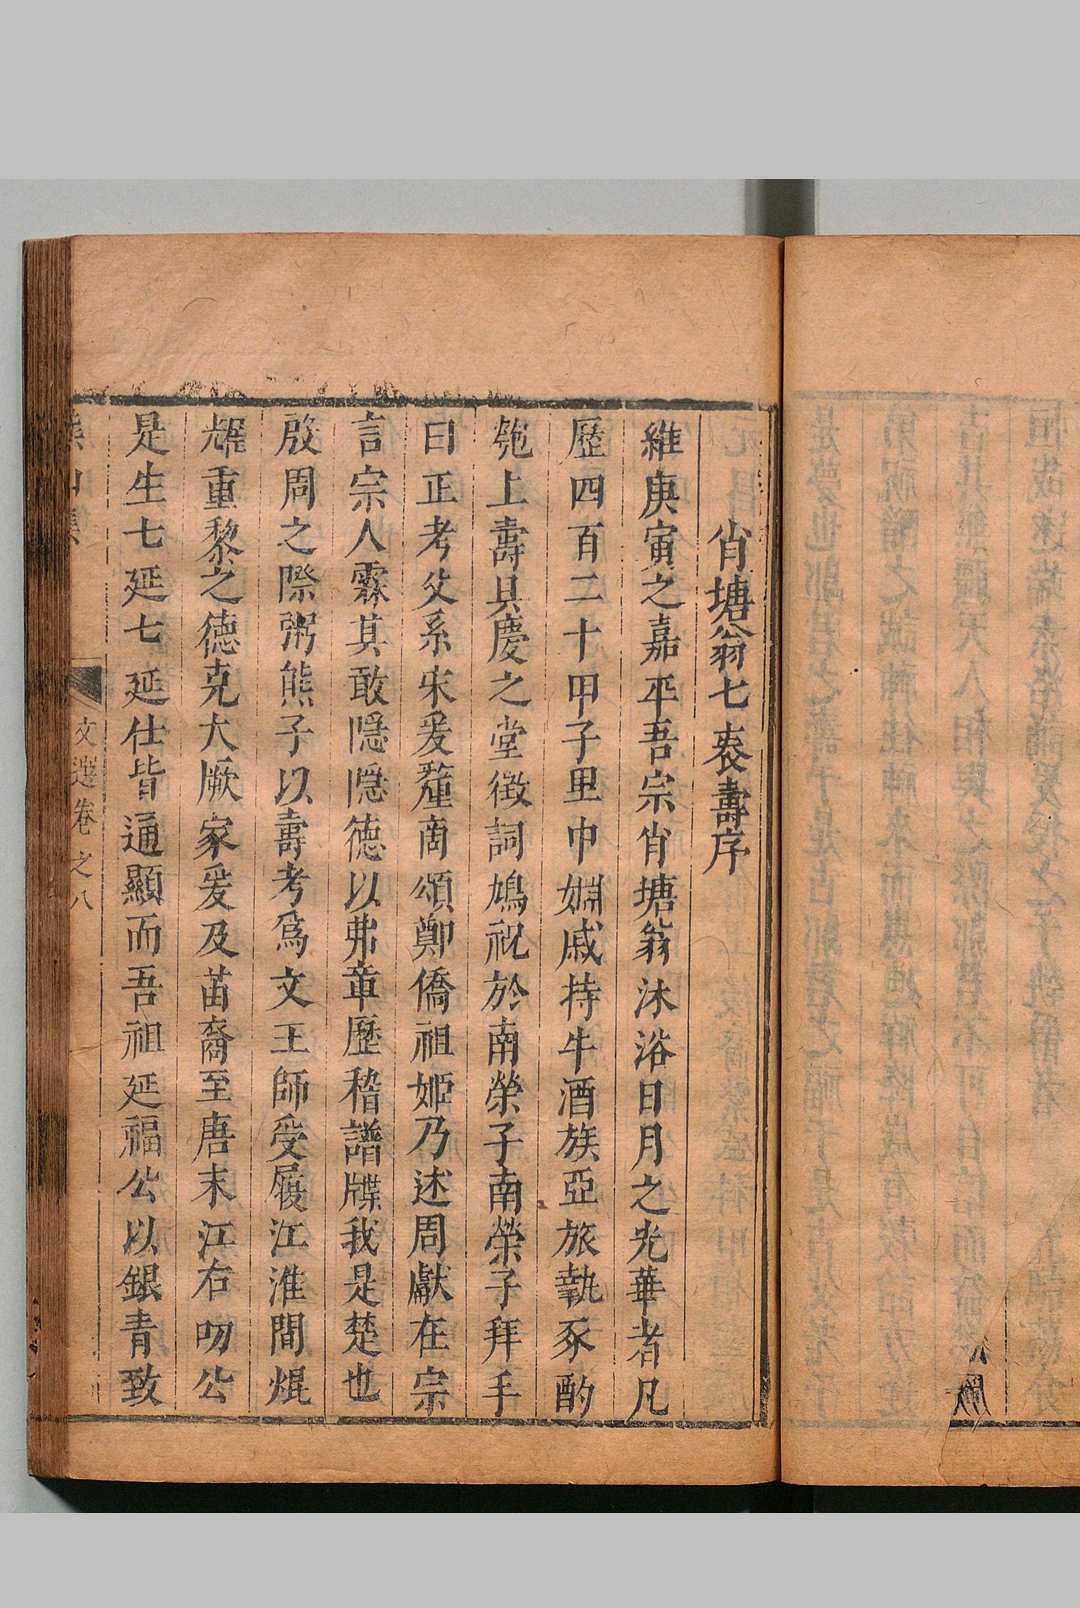 肖塘翁七袠壽序
維庚寅之嘉平吾宗肖塘翁沐浴日月之光華者凡
歷四百二十甲子里巾婣戚持牛酒族亞旅執豕酌
匏上壽具慶之堂徵詞鳩祝於南榮子南榮子拜手
曰正考父系宋爰釐商頌鄭僑祖姬乃述周獻在宗
言宗人霖其敢隱隱德以弗章歷稽譜牒我是楚也
殷周之際粥熊子以壽考爲文王師受履江淮間焜
燿重黎之德克大厥家爰及苗裔至唐末江右叨公
是生七延七延仕皆通顯而吾祖延福公以銀青致
文選卷之八